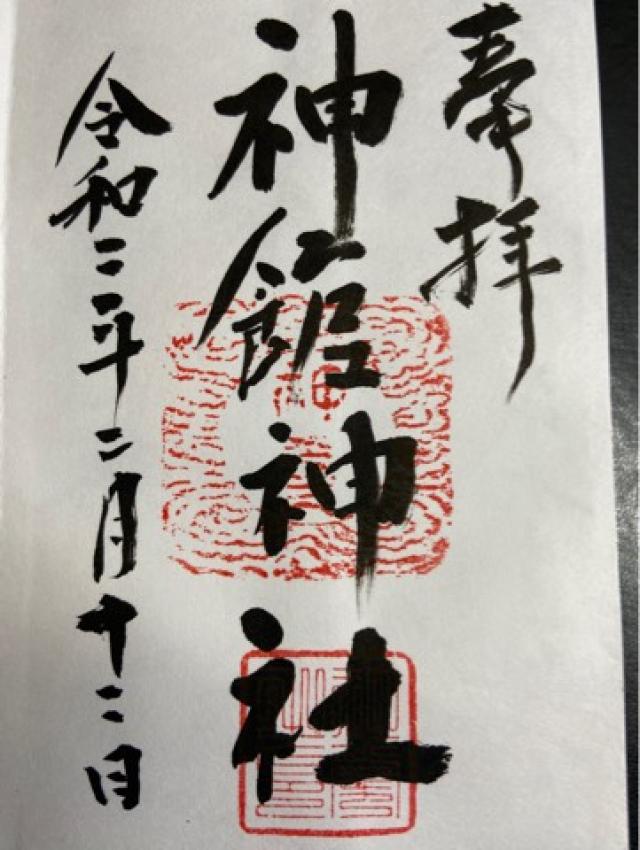 奉拝
神館神社
令和三年二月十二日